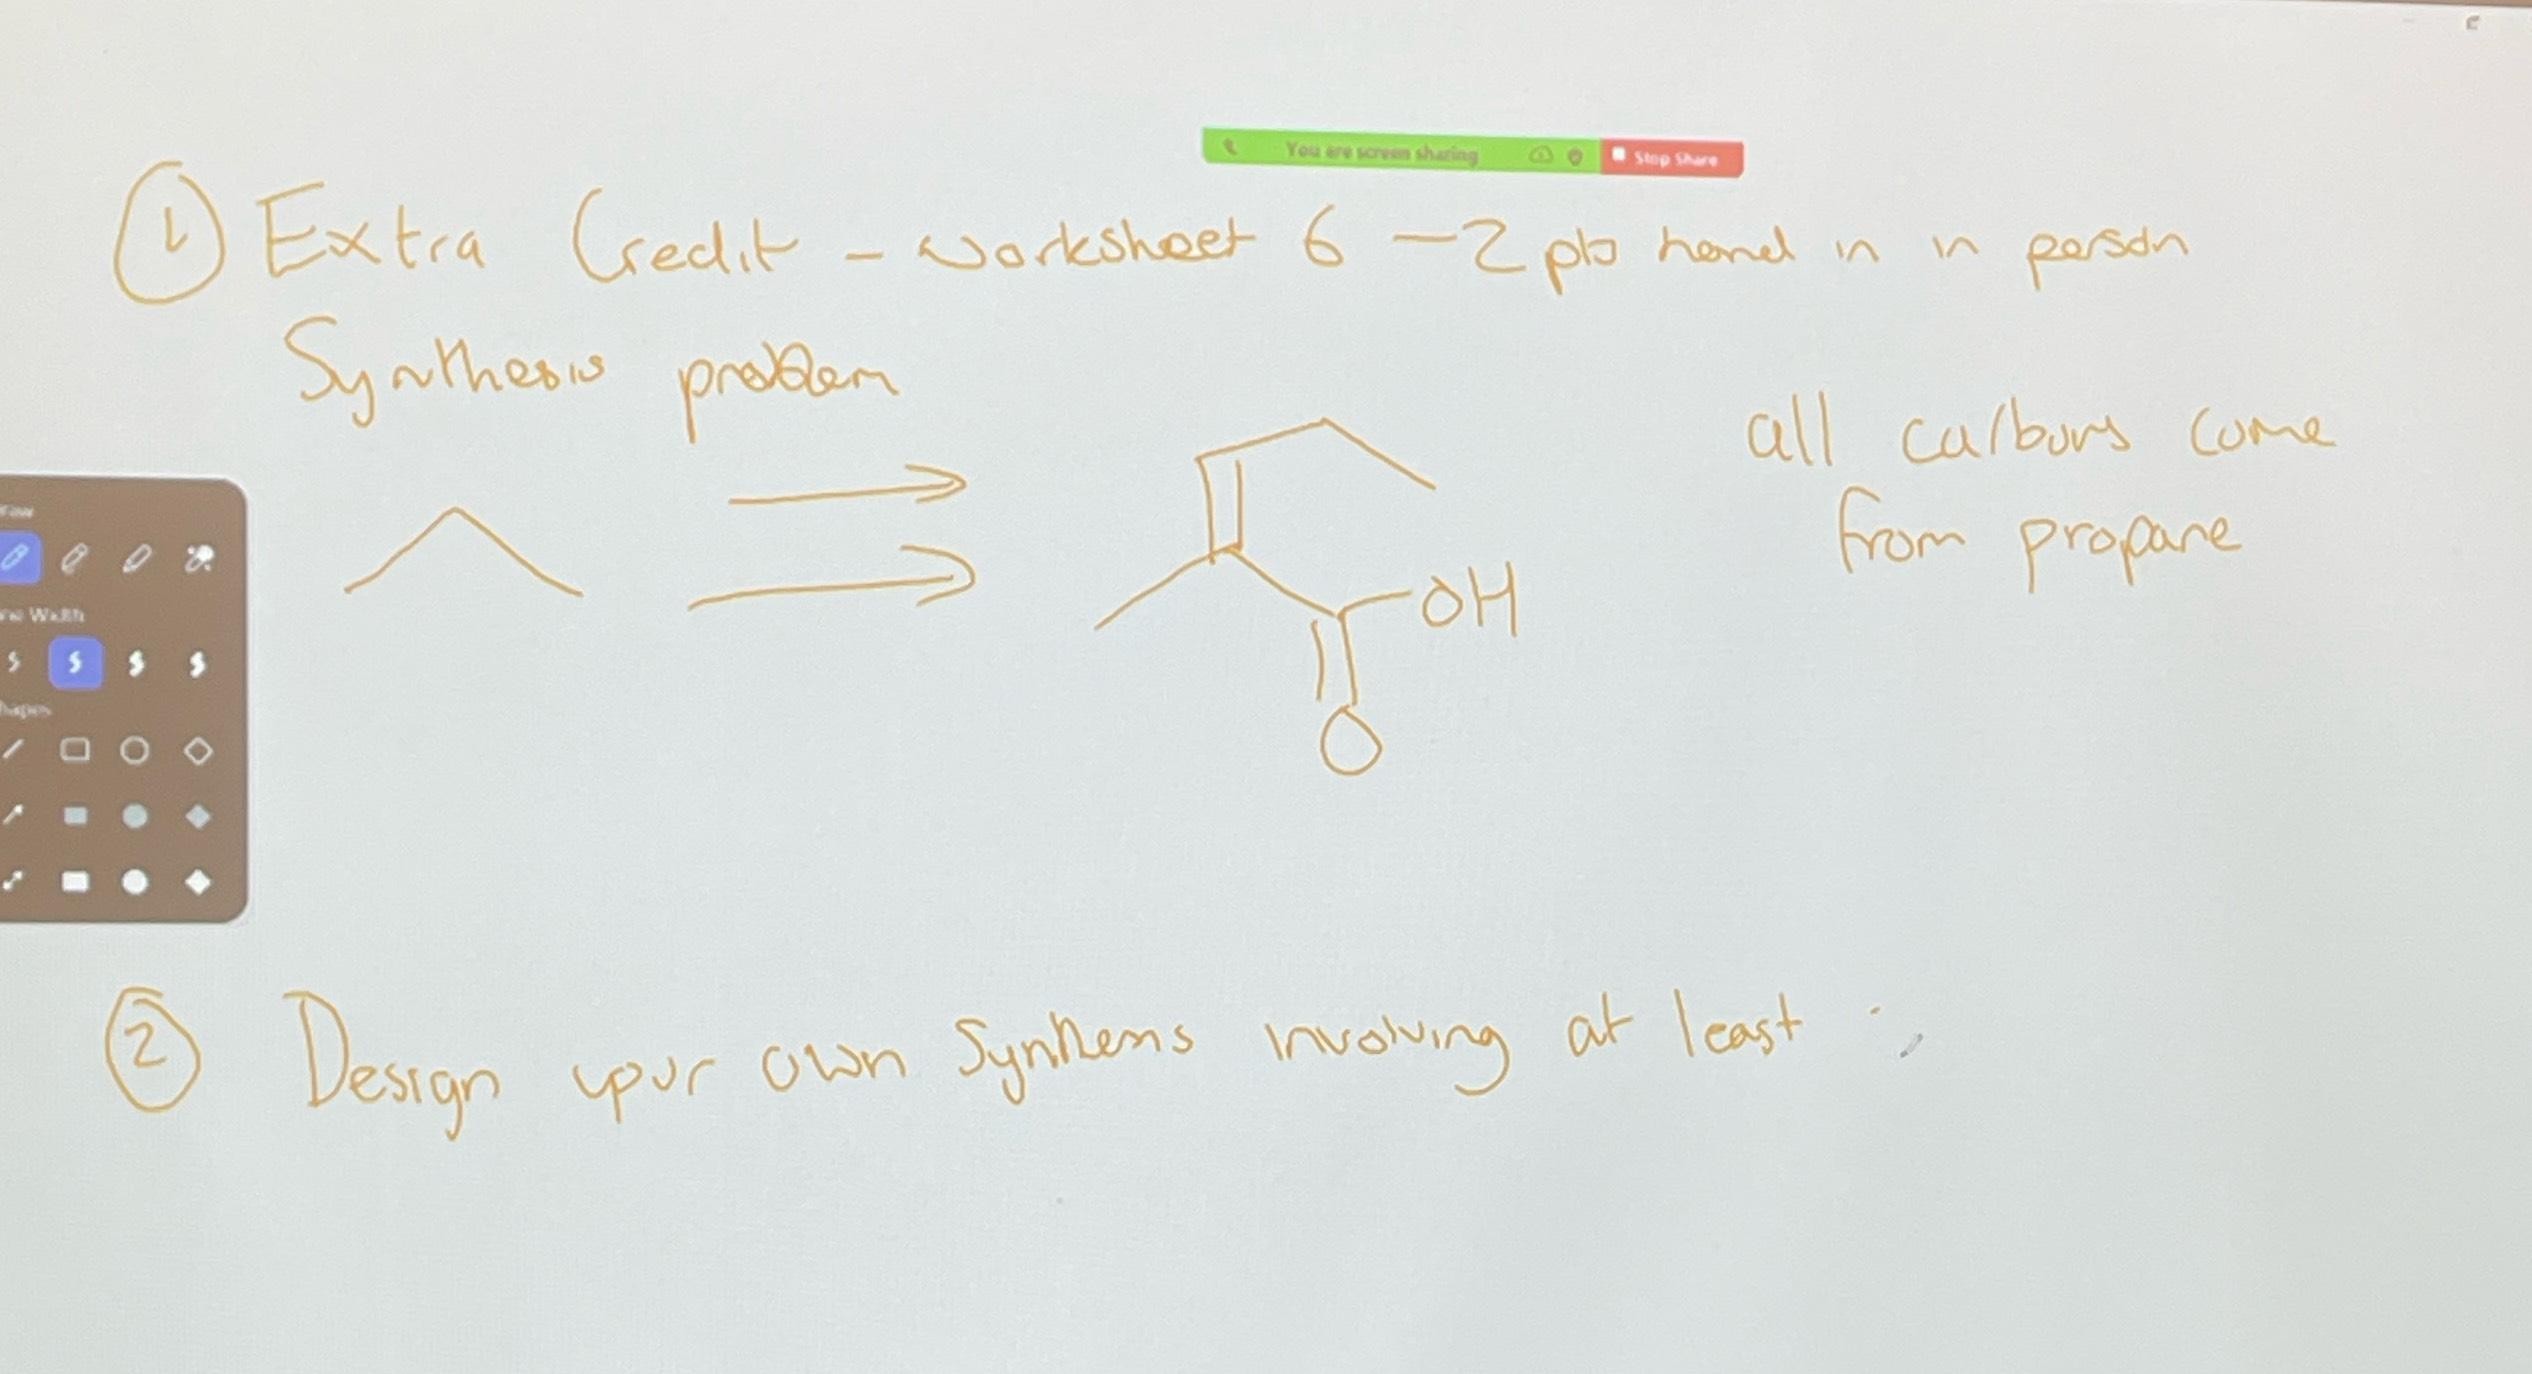 You are screen sharing Stop Share
1 Extra Credit - worksheet 6 - 2 pts hand in in person
Synthesis problem
all carbons come
from propane
OH
O
Line Width
Shapes
2 Design your own Synthesis involving at least :